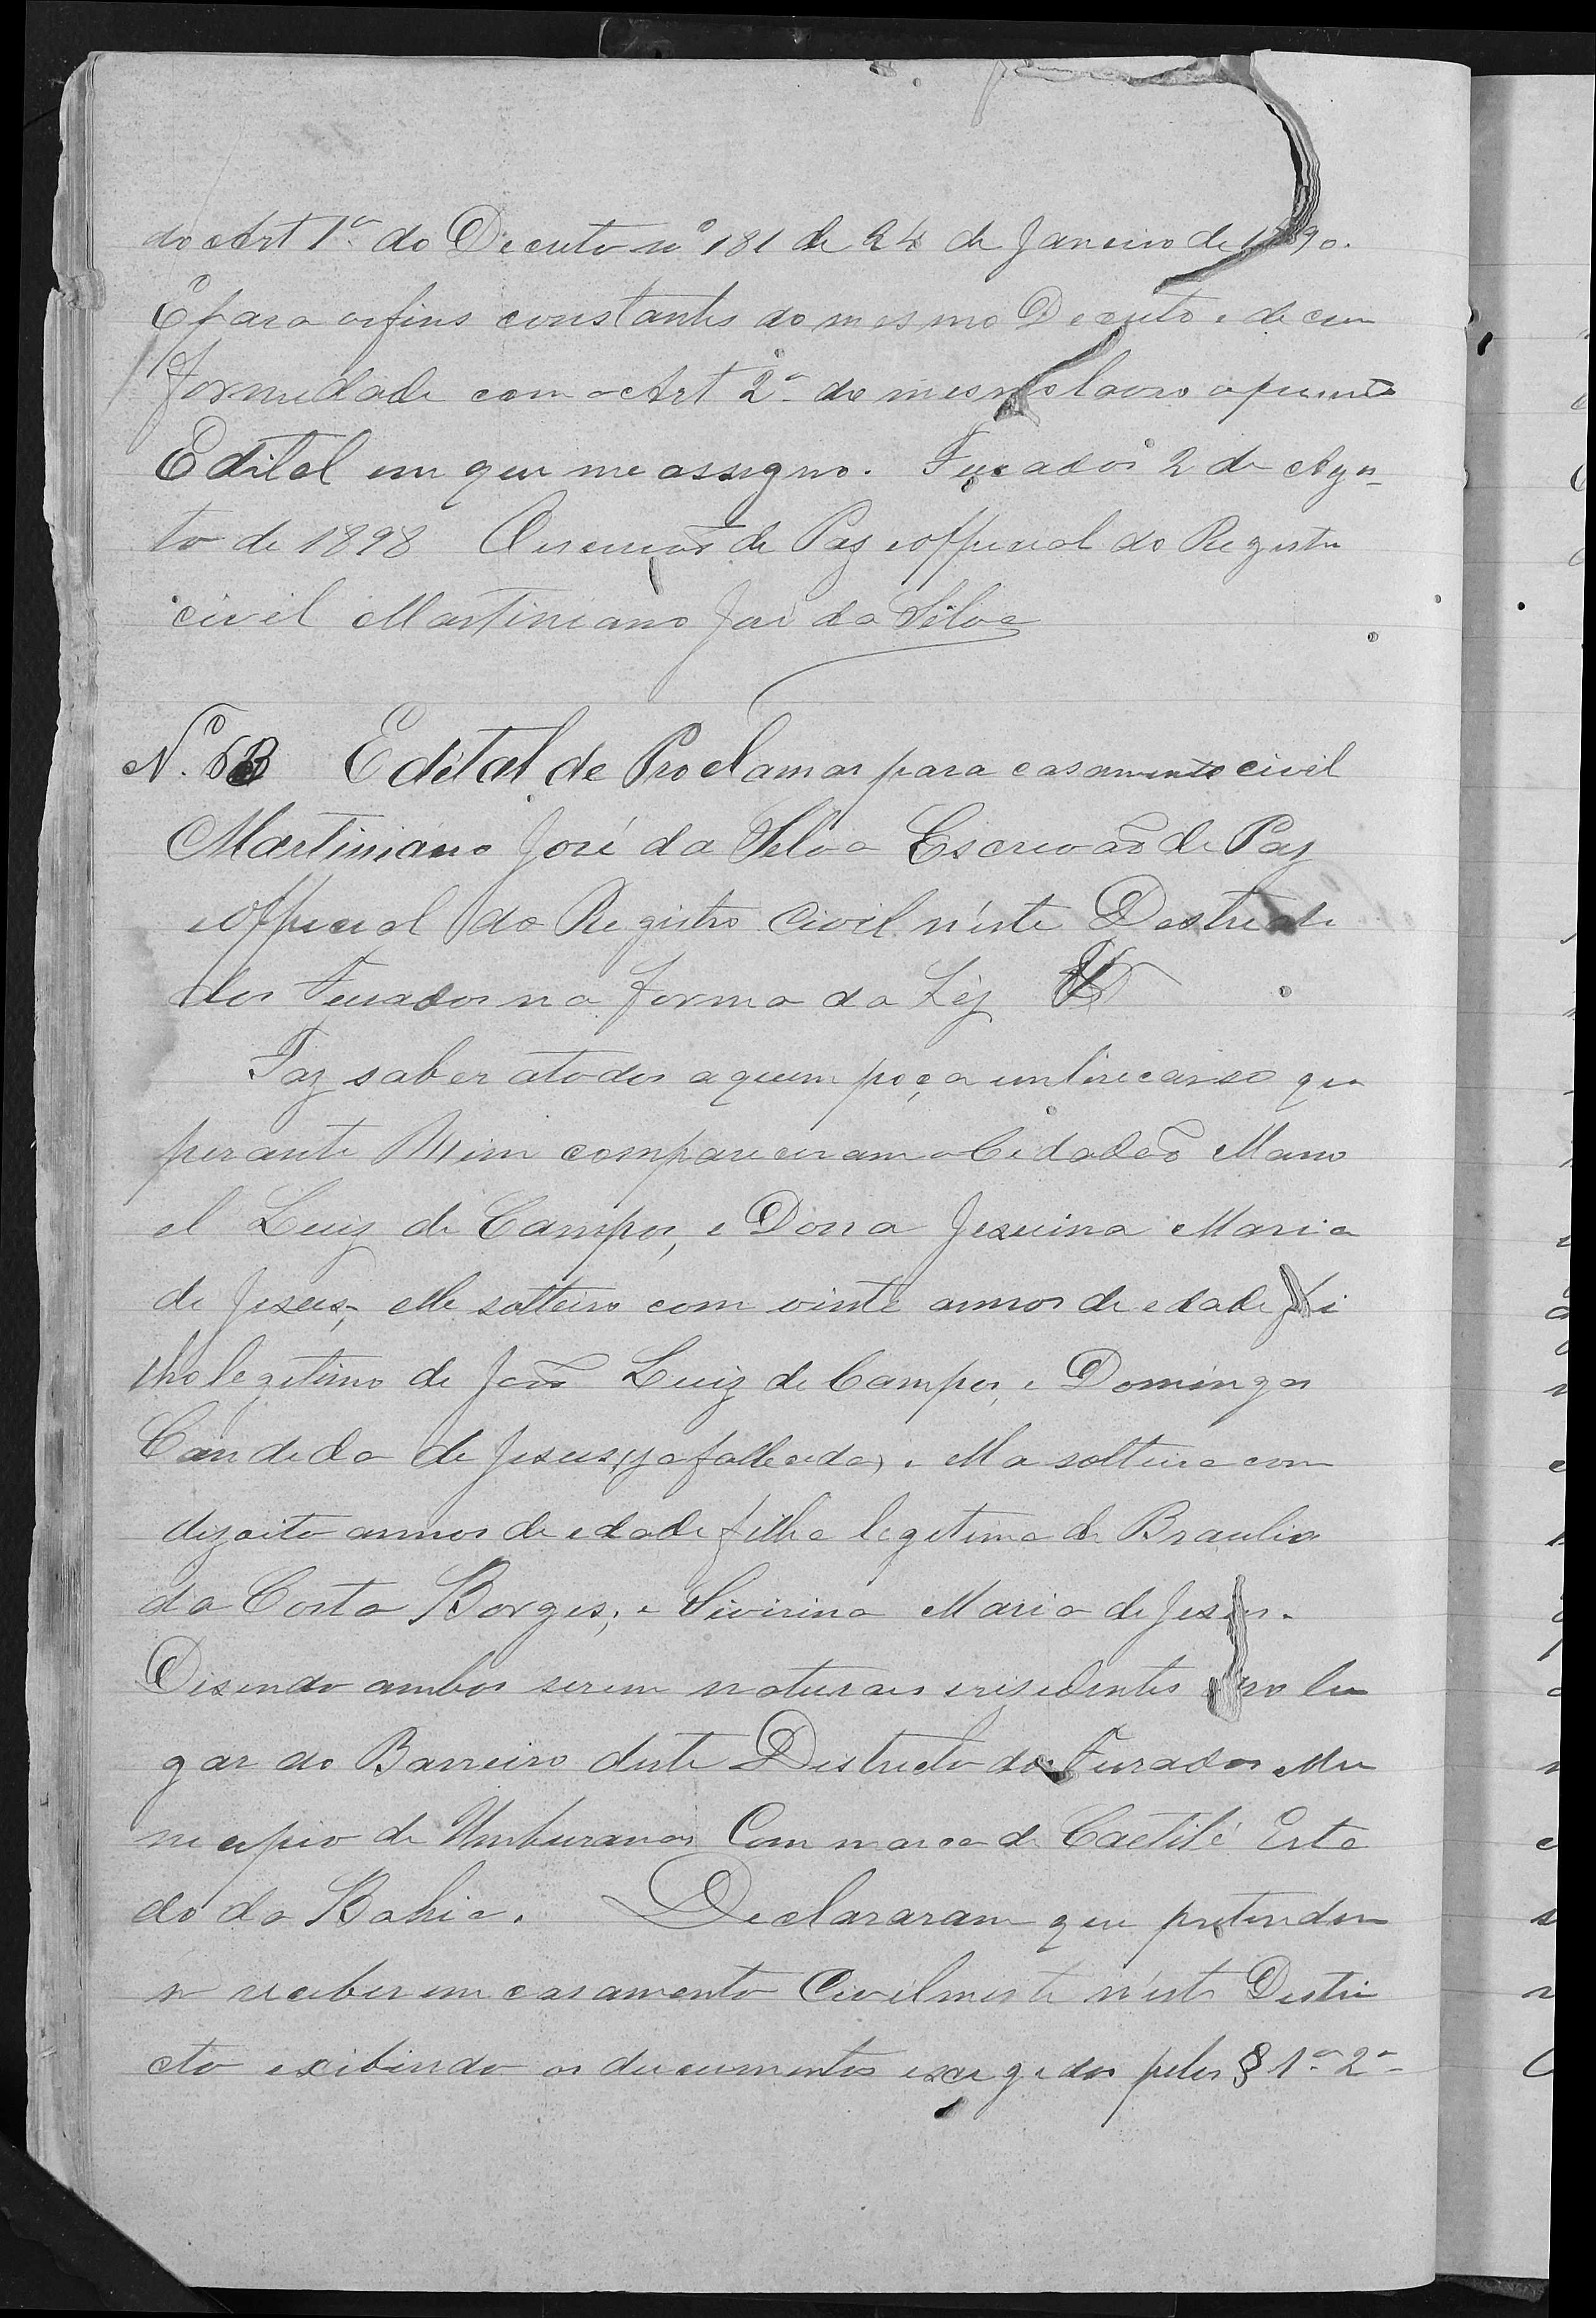 do Art 1º do Decreto nº 181 de 24 de Janeiro de 1890.
E para os fins constantes do mesmo Decreto e de con
formidade com o Art 2º do mesmo lavro o presente
Edital em que me assigno. Furados 2 de Agos-
to de 1898 O escrivão de Paz e official do Registro
civil Martiniano José da Silva
Nº 63 Edital de Proclamas para casamento civil
Martiniano José da Silva Escrivão de Paz
e official do Registro Civil n'este Destricto
dos Furados na forma da Lej
Faz saber a todos a quem poça enterecar que
perante Mim compareceram o Cidadão Mano
el Luiz de Campos, e Dona Jesuina Maria
de Jesus, elle solteiro com vinte annos de edade fi
lho legetimo de João Luiz de Campos, e Domingas
Candida de Jesus, (ja fallecida), e Ella solteira com
dizoito annos de edade filha legetima de Braulio
da Costa Borges, e Sivirina Maria de Jesus.
Disendo ambos serem naturaes e risidentes no lu
gar do Barreiro deste Destricto dos Furados Mu
necipio de Umburanas Commarca de Caetité Esta
do da Bahia. Declararam que pretendem
se receberem casamento Civilmente n'este Destri
cto exibindo os documentos exegidos pelos § 1º 2º